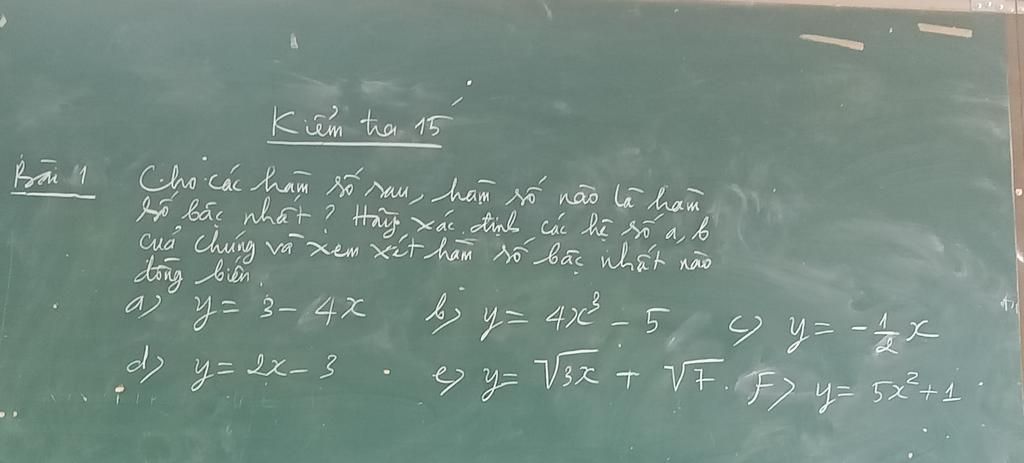 Kiểm tra 15'
Bài 1 Cho các hàm số sau, hàm số nào là hàm
số bậc nhất? Hãy xác định các hệ số a, b
của chúng và xem xét hàm số bậc nhất nào
đồng biến.
a) y = 3 - 4x b) y = 4x³ - 5 c) y = -1/2 x
d) y = 2x - 3 e) y = √3x + √7. f) y = 5x² + 1